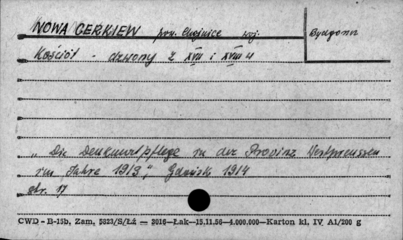 NOWA CERKIEW pow. Chojnice woj. Bydgoszcz
Kościół - dzwony z XVII i XVIII w
„Die Denkmalpflege in der Provinz Westpreussen
im Jahre 1913", Gdańsk 1914
str. 17
CWD - B-15b, Zam. 5823/S/Łż — 3016—Łak—15.11.56—4.000.000—Karton kl. IV A1/200 g